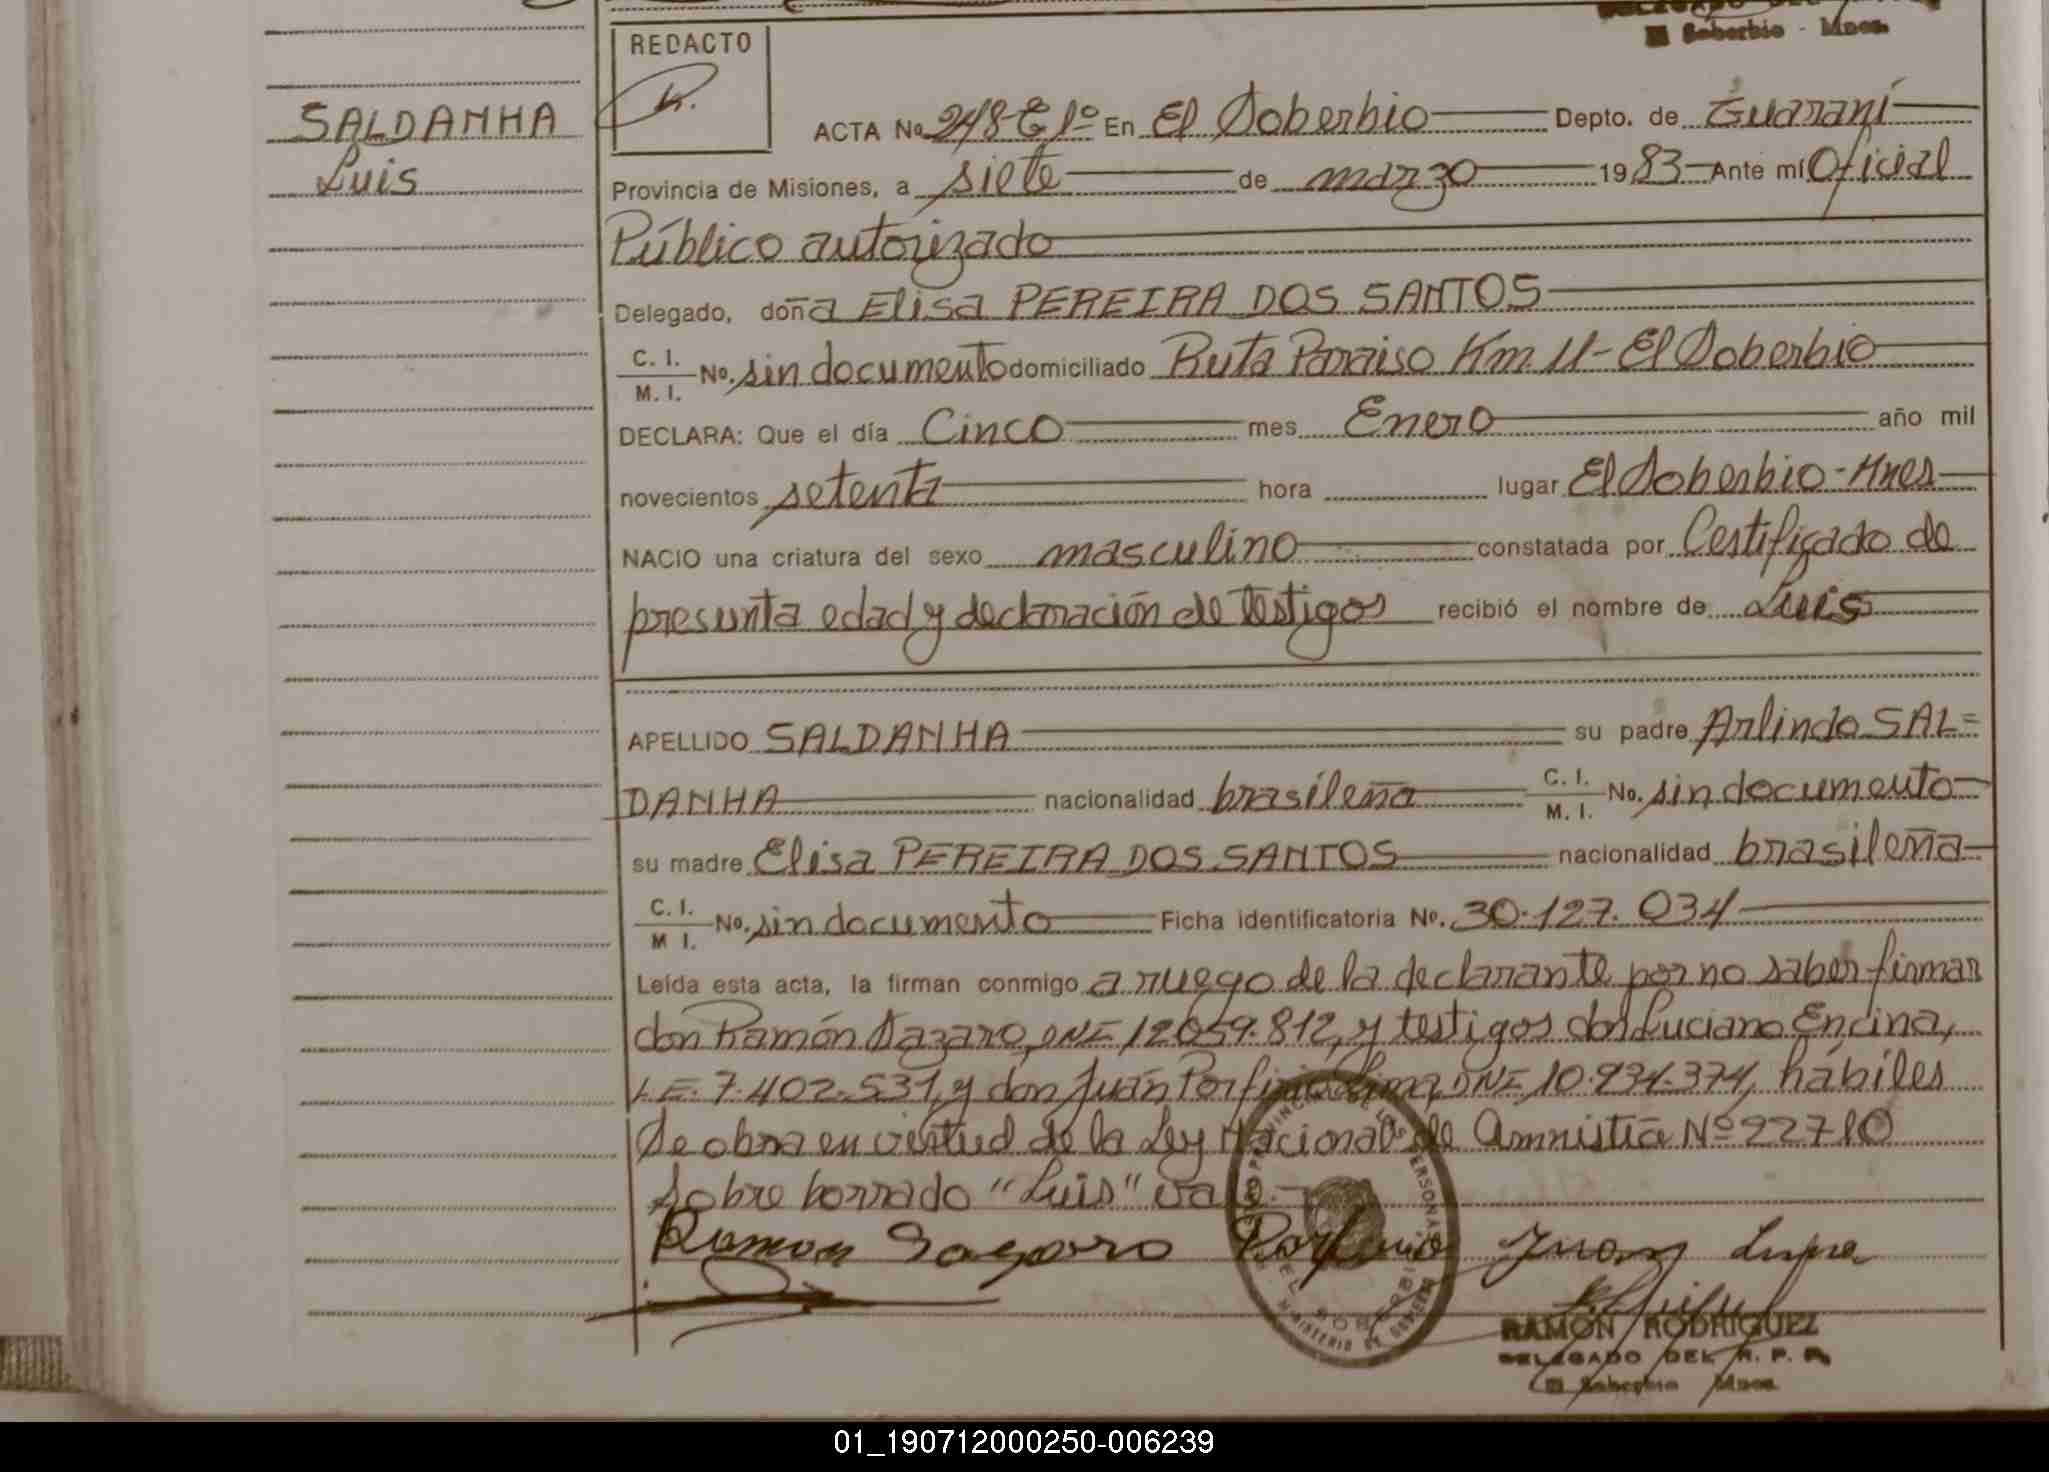 El Soberbio - Mnes.
REDACTO
SALDANHA
Luis
ACTA No 248 E 1º En El Soberbio Depto. de Guaraní
Provincia de Misiones, a siete de marzo 1983 Ante mí Oficial
Público autorizado
Delegado, doña Elisa PEREIRA DOS SANTOS
C. I. / M. I. No. sin documento domiciliado Ruta Paraiso Km. 11 - El Soberbio
DECLARA: Que el día Cinco mes Enero año mil
novecientos setenta hora lugar El Soberbio - Mnes
NACIO una criatura del sexo masculino constatada por Certificado de
presunta edad y declaración de testigos recibió el nombre de Luis
APELLIDO SALDANHA su padre Arlindo SAL=
DANHA nacionalidad brasileña C. I. / M. I. No. sin documento
su madre Elisa PEREIRA DOS SANTOS nacionalidad brasileña
C. I. / M I. No. sin documento Ficha identificatoria No. 30.127.034
Leída esta acta, la firman conmigo a ruego de la declarante por no saber firmar
don Ramón Sazaro, DNI 12.059.812, y testigos don Luciano Encina,
L.E. 7.402.531, y don Juan Porfirio DNI 10.934.374, hábiles
Se obra en virtud de la Ley Nacional de Amnistia Nº 22710
Sobre borrado "Luis" vale.-
Ramon Porfirio Juan
RAMON RODRIGUEZ
DELEGADO DEL R. P. P.
El Soberbio Mnes.
01_190712000250-006239